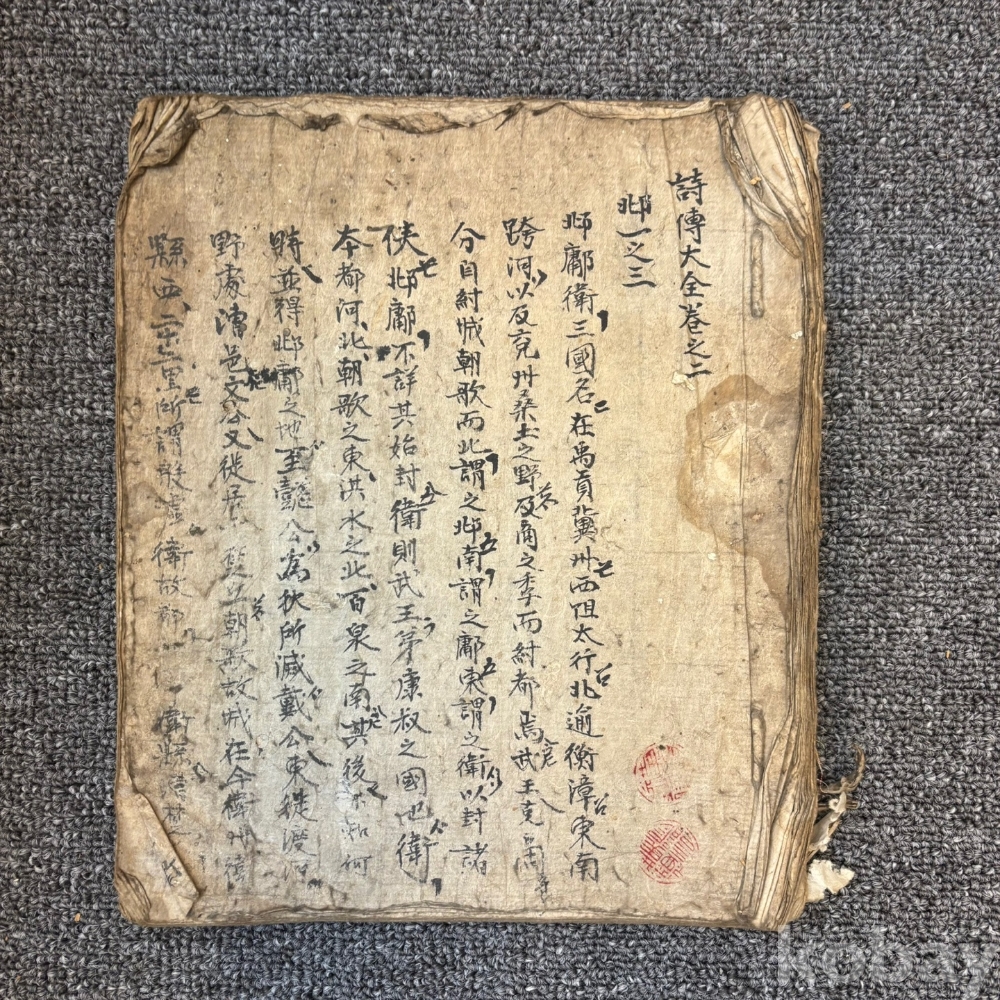 詩傳大全卷之二
邶一之三
邶鄘衛三國名在禹貢冀州西阻太行北逾衡漳東南
跨河以及兗州桑土之野及商之季而紂都焉武王克商
分自紂城朝歌而北謂之邶南謂之鄘東謂之衛以封諸
侯邶鄘不詳其始封衛則武王弟康叔之國也衛
本都河北朝歌之東淇水之北百泉之南其後不知何
時並得邶鄘之地至懿公為狄所滅戴公東徙渡河
野處漕邑文公又徙居 朝歌故城在今衛州衛
縣西二十二里所謂殷墟衛故都 衛縣
kobay